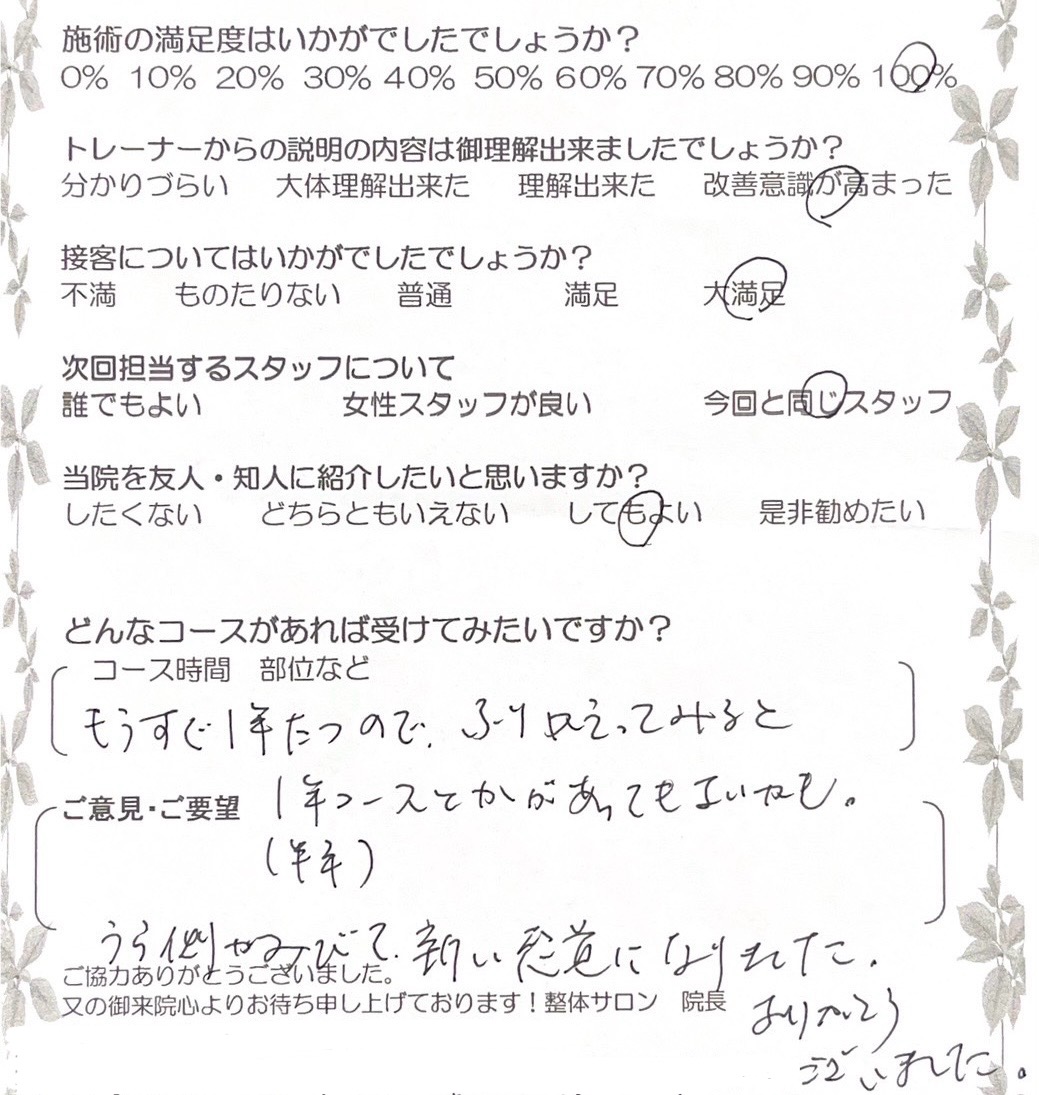 施術の満足度はいかがでしたでしょうか？
0% 10% 20% 30% 40% 50% 60% 70% 80% 90% 100%
トレーナーからの説明の内容は御理解出来ましたでしょうか？
分かりづらい 大体理解出来た 理解出来た 改善意識が高まった
接客についてはいかがでしたでしょうか？
不満 ものたりない 普通 満足 大満足
次回担当するスタッフについて
誰でもよい 女性スタッフが良い 今回と同じスタッフ
当院を友人・知人に紹介したいと思いますか？
したくない どちらともいえない してもよい 是非勧めたい
どんなコースがあれば受けてみたいですか？
コース時間 部位など
もうすぐ1年たつので、ふり返ってみると
1年コースとかがあってもよいかも。
ご意見・ご要望
うら側がのびて、新しい感覚になりました。
ご協力ありがとうございました。
又の御来院心よりお待ち申し上げております！整体サロン 院長
ありがとう
ございました。